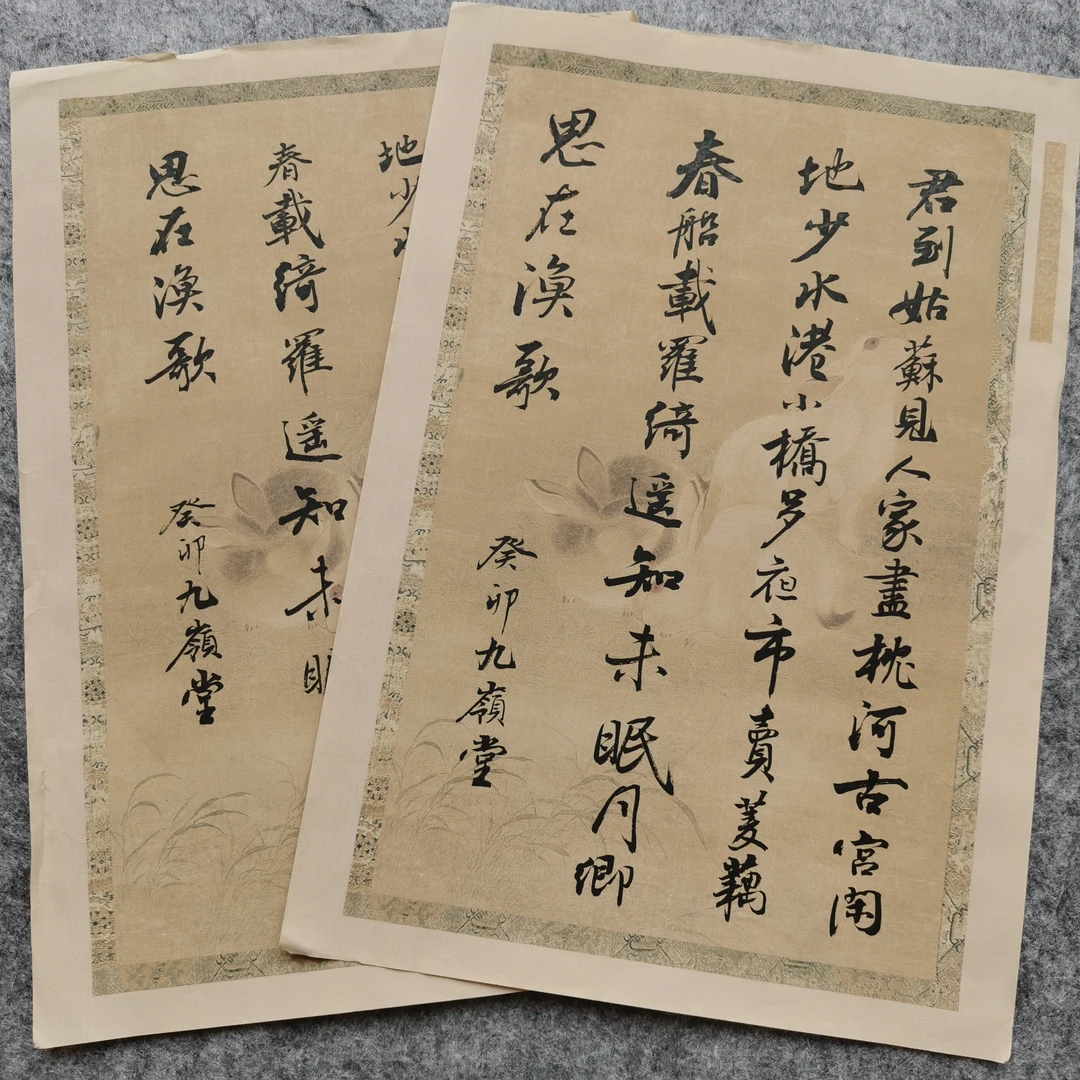 君到姑蘇見人家盡枕河古宮閑
地少水港小橋多夜市賣菱藕
春船載羅綺遥知未眠月鄉
思在漁歌
癸卯九嶺堂
地少
春載綺羅遥知未
思在漁歌
癸卯九嶺堂